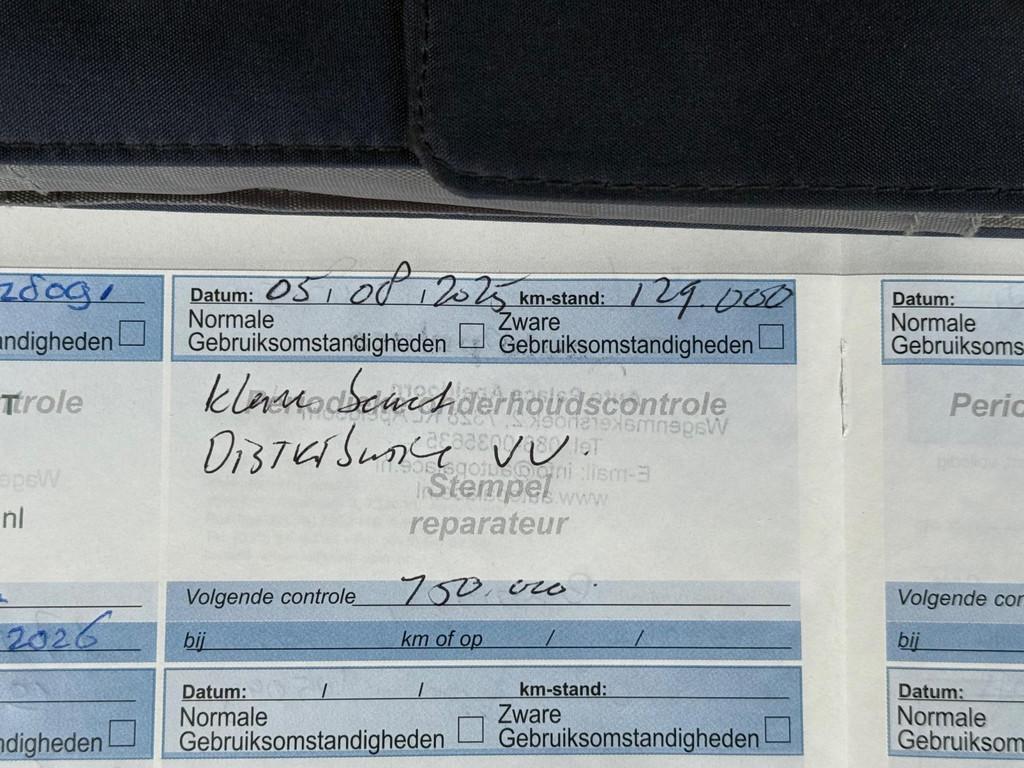 28091
Datum: 05, 08, 2025 km-stand: 129.000
Datum:
ndigheden
Normale
Gebruiksomstandigheden
Zware
Gebruiksomstandigheden
Normale
Gebruiksoms
T
trole
Periodieke onderhoudscontrole
Perio
Klein beurt
Distributie VV.
Stempel
reparateur
nl
Volgende controle 150.000.
Volgende con
2026
bij km of op / /
bij
Datum: / / km-stand:
Datum:
ndigheden
Normale
Gebruiksomstandigheden
Zware
Gebruiksomstandigheden
Normale
Gebruiksom